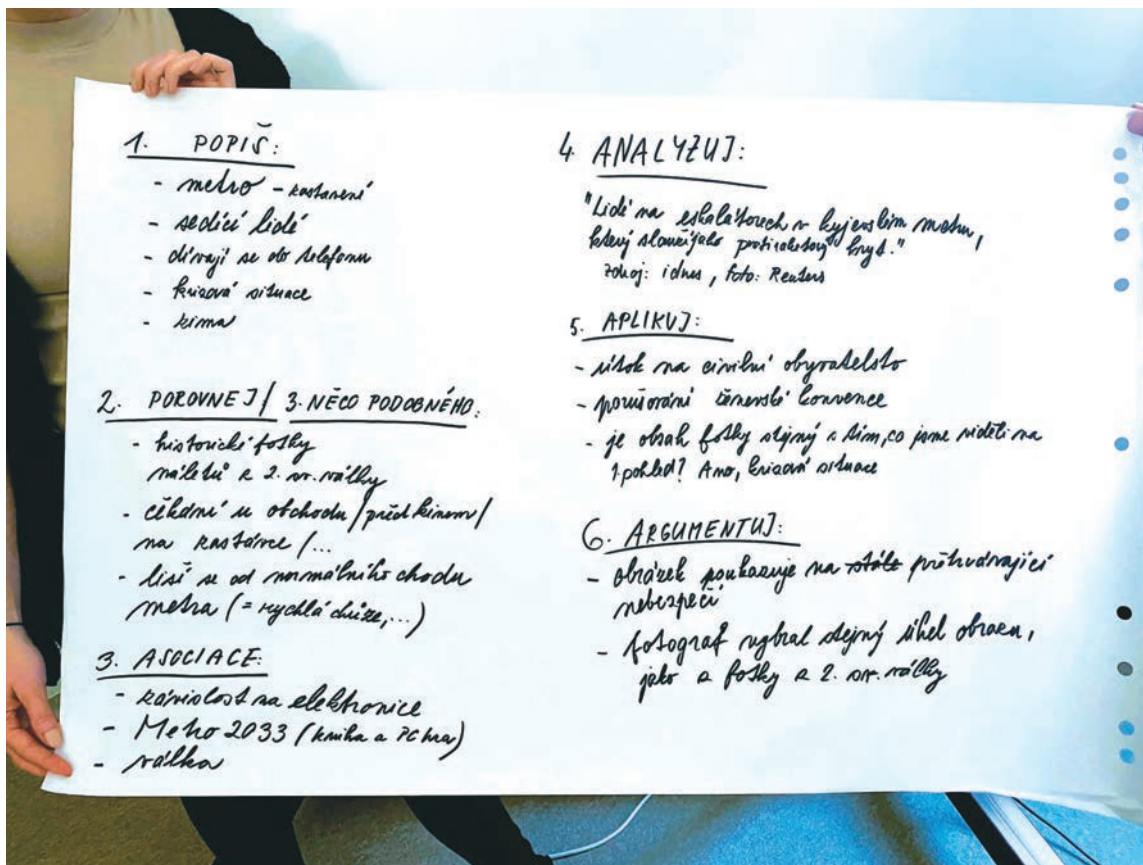 1. POPIŠ:
- metro - zastavené
- sedící lidé
- dívají se do telefonu
- krizová situace
- zima
2. POROVNEJ / 3. NĚCO PODOBNÉHO:
- historické fotky
náletů z 2. sv. války
- čekání u obchodu / před kinem /
na zastávce / ...
- liší se od normálního chodu
metra (= rychlá chůze, ...)
3. ASOCIACE:
- závislost na elektronice
- Metro 2033 (kniha a PC hra)
- válka
4. ANALYZUJ:
"Lidé na eskalátorech v kyjevském metru,
který slouží jako protiraketový kryt."
zdroj: idnes, foto: Reuters
5. APLIKUJ:
- útok na civilní obyvatelstvo
- porušování ženevské konvence
- je obsah fotky stejný s tím, co jsme viděli na
1. pohled? Ano, krizová situace
6. ARGUMENTUJ:
- obrázek poukazuje na stále přetrvávající
nebezpečí
- fotograf vybral stejný úhel obrazu,
jako z fotky z 2. sv. války